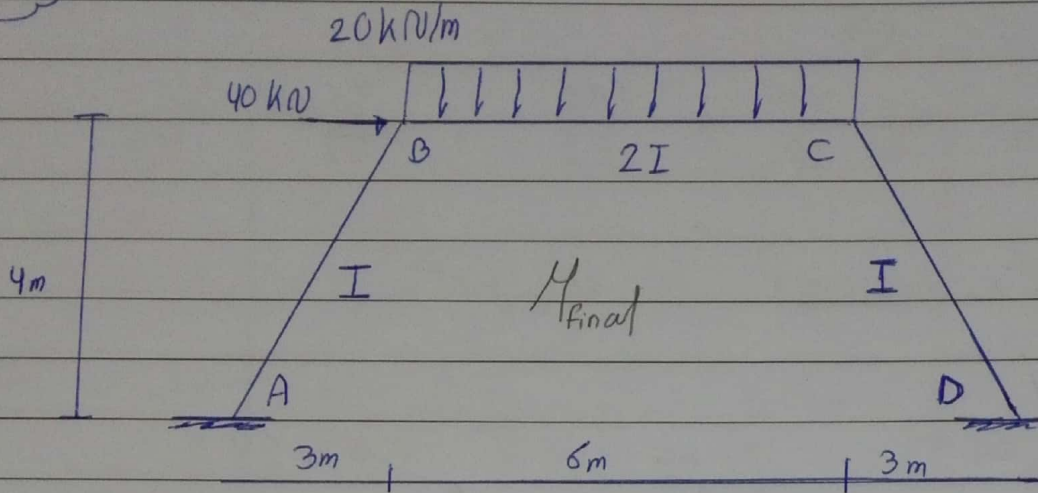 20kN/m
40kN
B
2I
C
4m
I
M final
I
A
D
3m
6m
3m